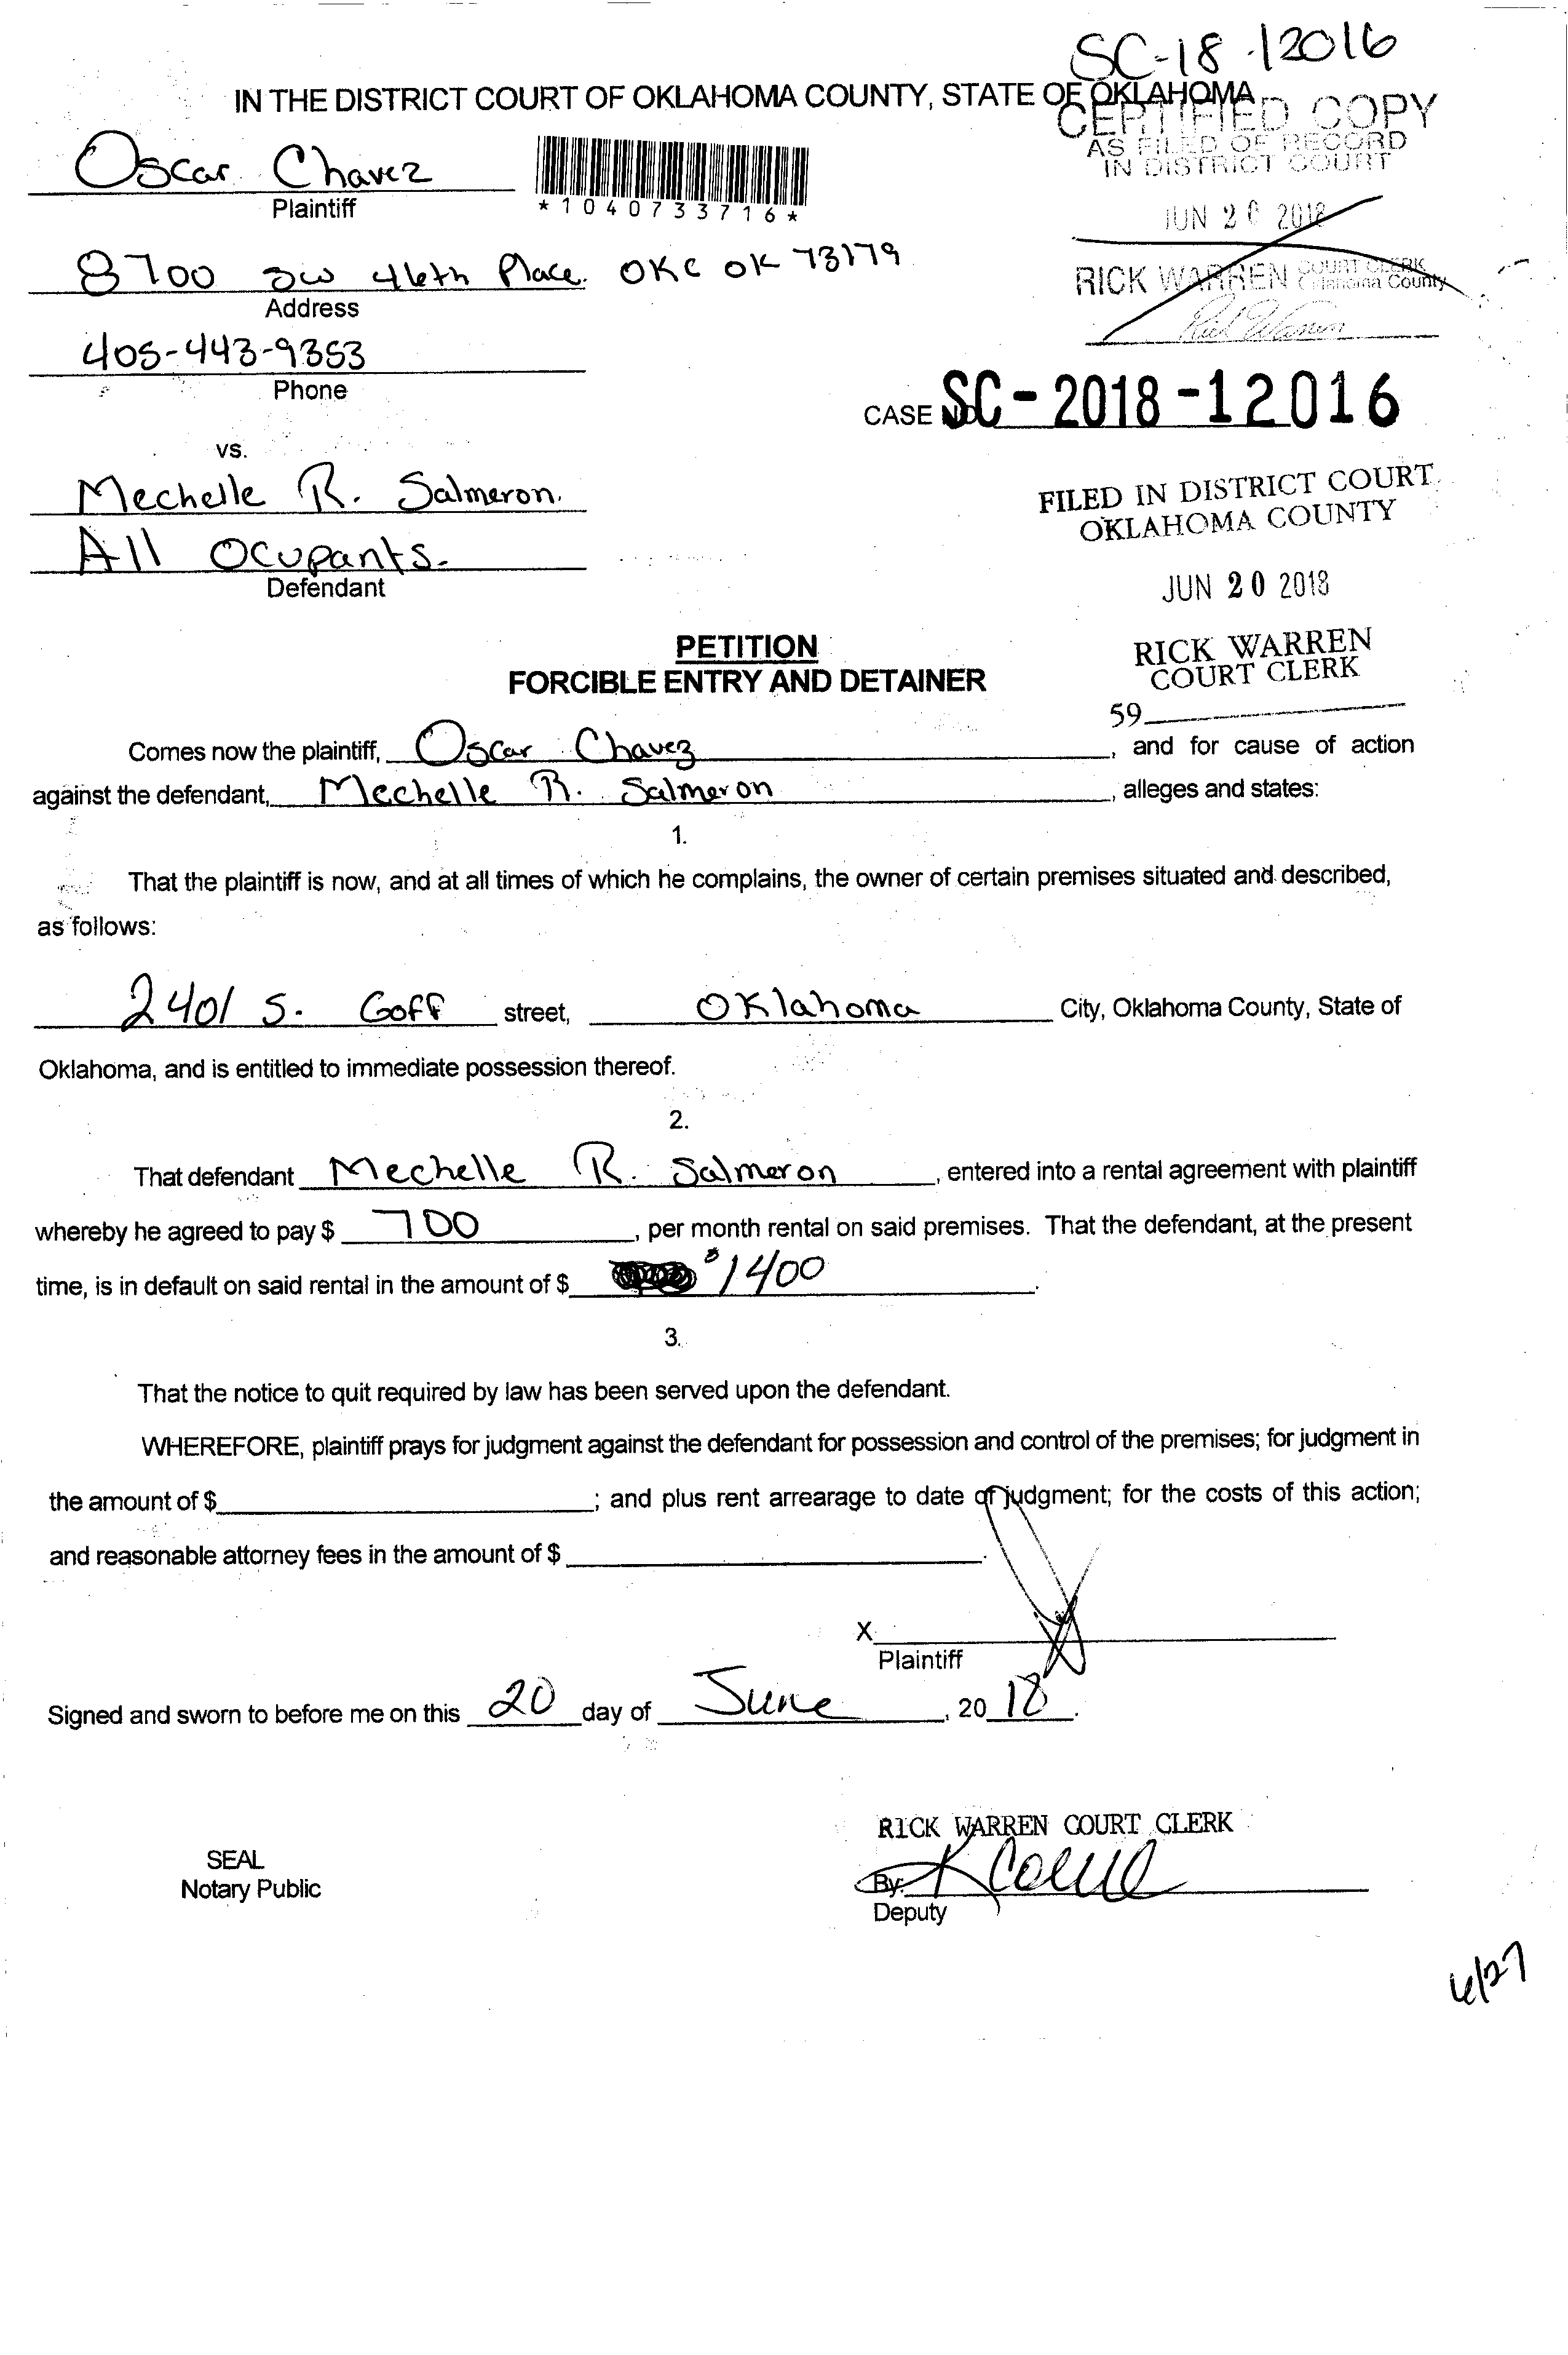 SC-18-12016
IN THE DISTRICT COURT OF OKLAHOMA COUNTY, STATE OF OKLAHOMA
CERTIFIED COPY
AS FILED OF RECORD
IN DISTRICT COURT
Oscar Chavez
Plaintiff
*1040733716*
JUN 20 2018
8700 SW 46th Place. OKC OK 73179
Address
RICK WARREN COURT CLERK
Oklahoma County
Rick Warren
405-443-9353
Phone
CASE NO. SC-2018-12016
vs.
Mechelle R. Salmeron.
All Ocupants.
Defendant
FILED IN DISTRICT COURT
OKLAHOMA COUNTY
JUN 20 2018
PETITION
FORCIBLE ENTRY AND DETAINER
RICK WARREN
COURT CLERK
59
Comes now the plaintiff, Oscar Chavez, and for cause of action
against the defendant, Mechelle R. Salmeron, alleges and states:
1.
That the plaintiff is now, and at all times of which he complains, the owner of certain premises situated and described,
as follows:
2401 S. Goff street, Oklahoma City, Oklahoma County, State of
Oklahoma, and is entitled to immediate possession thereof.
2.
That defendant Mechelle R. Salmeron, entered into a rental agreement with plaintiff
whereby he agreed to pay $ 700, per month rental on said premises. That the defendant, at the present
time, is in default on said rental in the amount of $ $1400.
3.
That the notice to quit required by law has been served upon the defendant.
WHEREFORE, plaintiff prays for judgment against the defendant for possession and control of the premises; for judgment in
the amount of $ ; and plus rent arrearage to date of judgment; for the costs of this action;
and reasonable attorney fees in the amount of $ .
X
Plaintiff
Signed and sworn to before me on this 20 day of June, 2018.
RICK WARREN COURT CLERK
SEAL
Notary Public
By:
Deputy
6/27